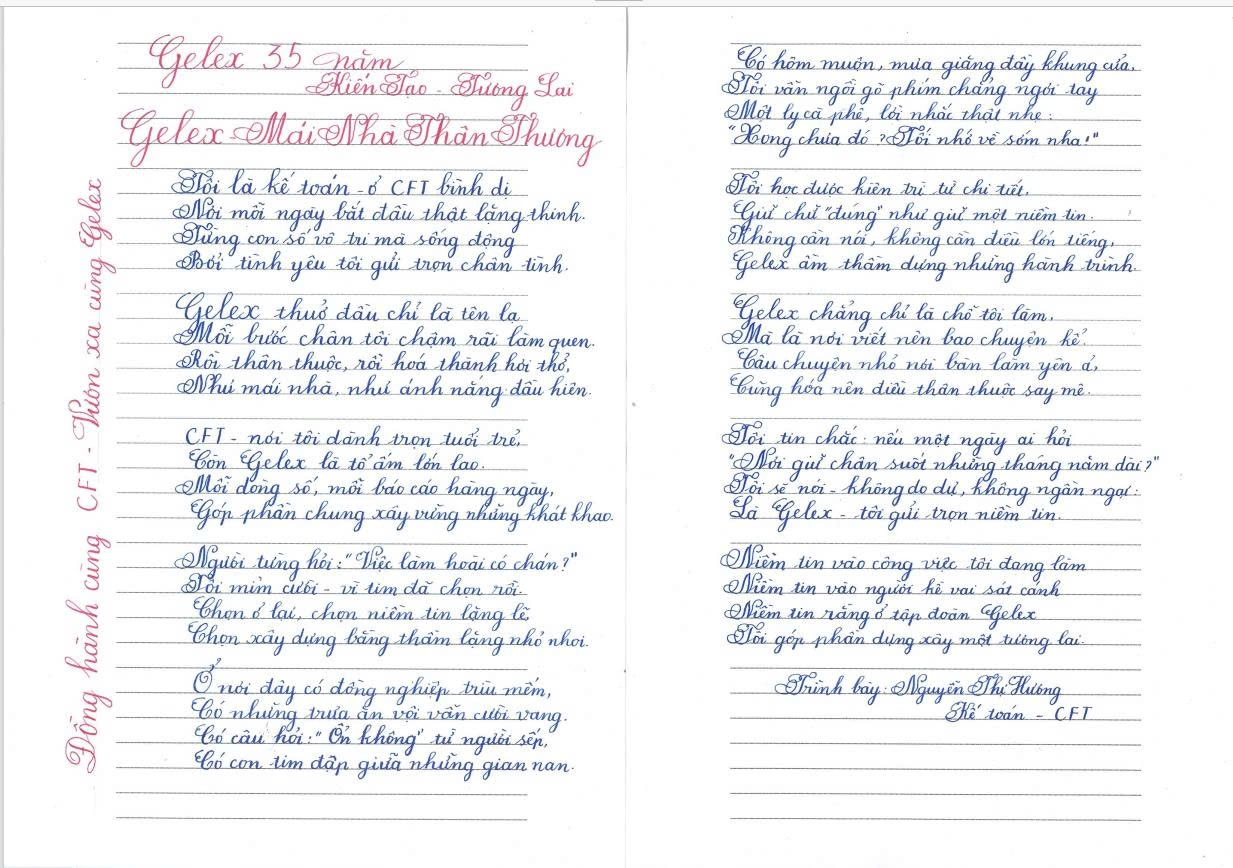 Gelex 35 năm
Kiến Tạo - Tương Lai
Gelex - Mái Nhà Thân Thương
Đồng hành cùng CFT - Vươn xa cùng Gelex
Tôi là kế toán - ở CFT bình dị
Nơi mỗi ngày bắt đầu thật lặng thinh.
Từng con số vô tri mà sống động
Bởi tình yêu tôi gửi trọn chân tình.
Gelex thuở đầu chỉ là tên lạ
Mỗi bước chân tôi chậm rãi làm quen.
Rồi thân thuộc, rồi hoá thành hơi thở,
Như mái nhà, như ánh nắng đầu hiên.
CFT - nơi tôi dành trọn tuổi trẻ,
Còn Gelex là tổ ấm lớn lao.
Mỗi dòng số, mỗi báo cáo hàng ngày,
Góp phần chung xây vững những khát khao.
Người từng hỏi: "Việc làm hoài có chán?"
Tôi mỉm cười - vì tim đã chọn rồi.
Chọn ở lại, chọn niềm tin lặng lẽ,
Chọn xây dựng bằng thầm lặng nhỏ nhoi.
Ở nơi đây có đồng nghiệp trìu mến,
Có những trưa ăn vội vẫn cười vang.
Có câu hỏi: "Ổn không" từ người sếp,
Có con tim đập giữa những gian nan.
Có hôm muộn, mưa giăng đầy khung cửa,
Tôi vẫn ngồi gõ phím chẳng ngơi tay
Một ly cà phê, lời nhắc thật nhẹ:
"Xong chưa đó? Tối nhớ về sớm nha!"
Tôi học được kiên trì từ chi tiết,
Giữ chữ "đúng" như giữ một niềm tin.
Không cần nói, không cần điều lớn tiếng,
Gelex âm thầm dựng những hành trình.
Gelex chẳng chỉ là chỗ tôi làm,
Mà là nơi viết nên bao chuyện kể.
Câu chuyện nhỏ nơi bàn làm yên ả,
Cũng hóa nên điều thân thuộc say mê.
Tôi tin chắc: nếu một ngày ai hỏi
"Nơi giữ chân suốt những tháng năm dài?"
Tôi sẽ nói - không do dự, không ngần ngại:
Là Gelex - tôi gửi trọn niềm tin.
Niềm tin vào công việc tôi đang làm
Niềm tin vào người kề vai sát cánh
Niềm tin rằng ở tập đoàn Gelex
Tôi góp phần dựng xây một tương lai.
Trình bày: Nguyễn Thị Hương
Kế toán - CFT